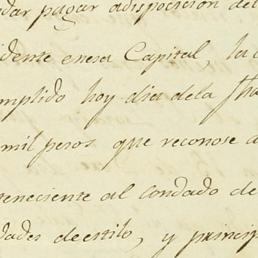 dar pagar adisposicion del
idente enesa Capital, la c
mplido hoy dia dela fha
mil pesos que reconose a
teneciente al condado de
dades deestilo, y princip